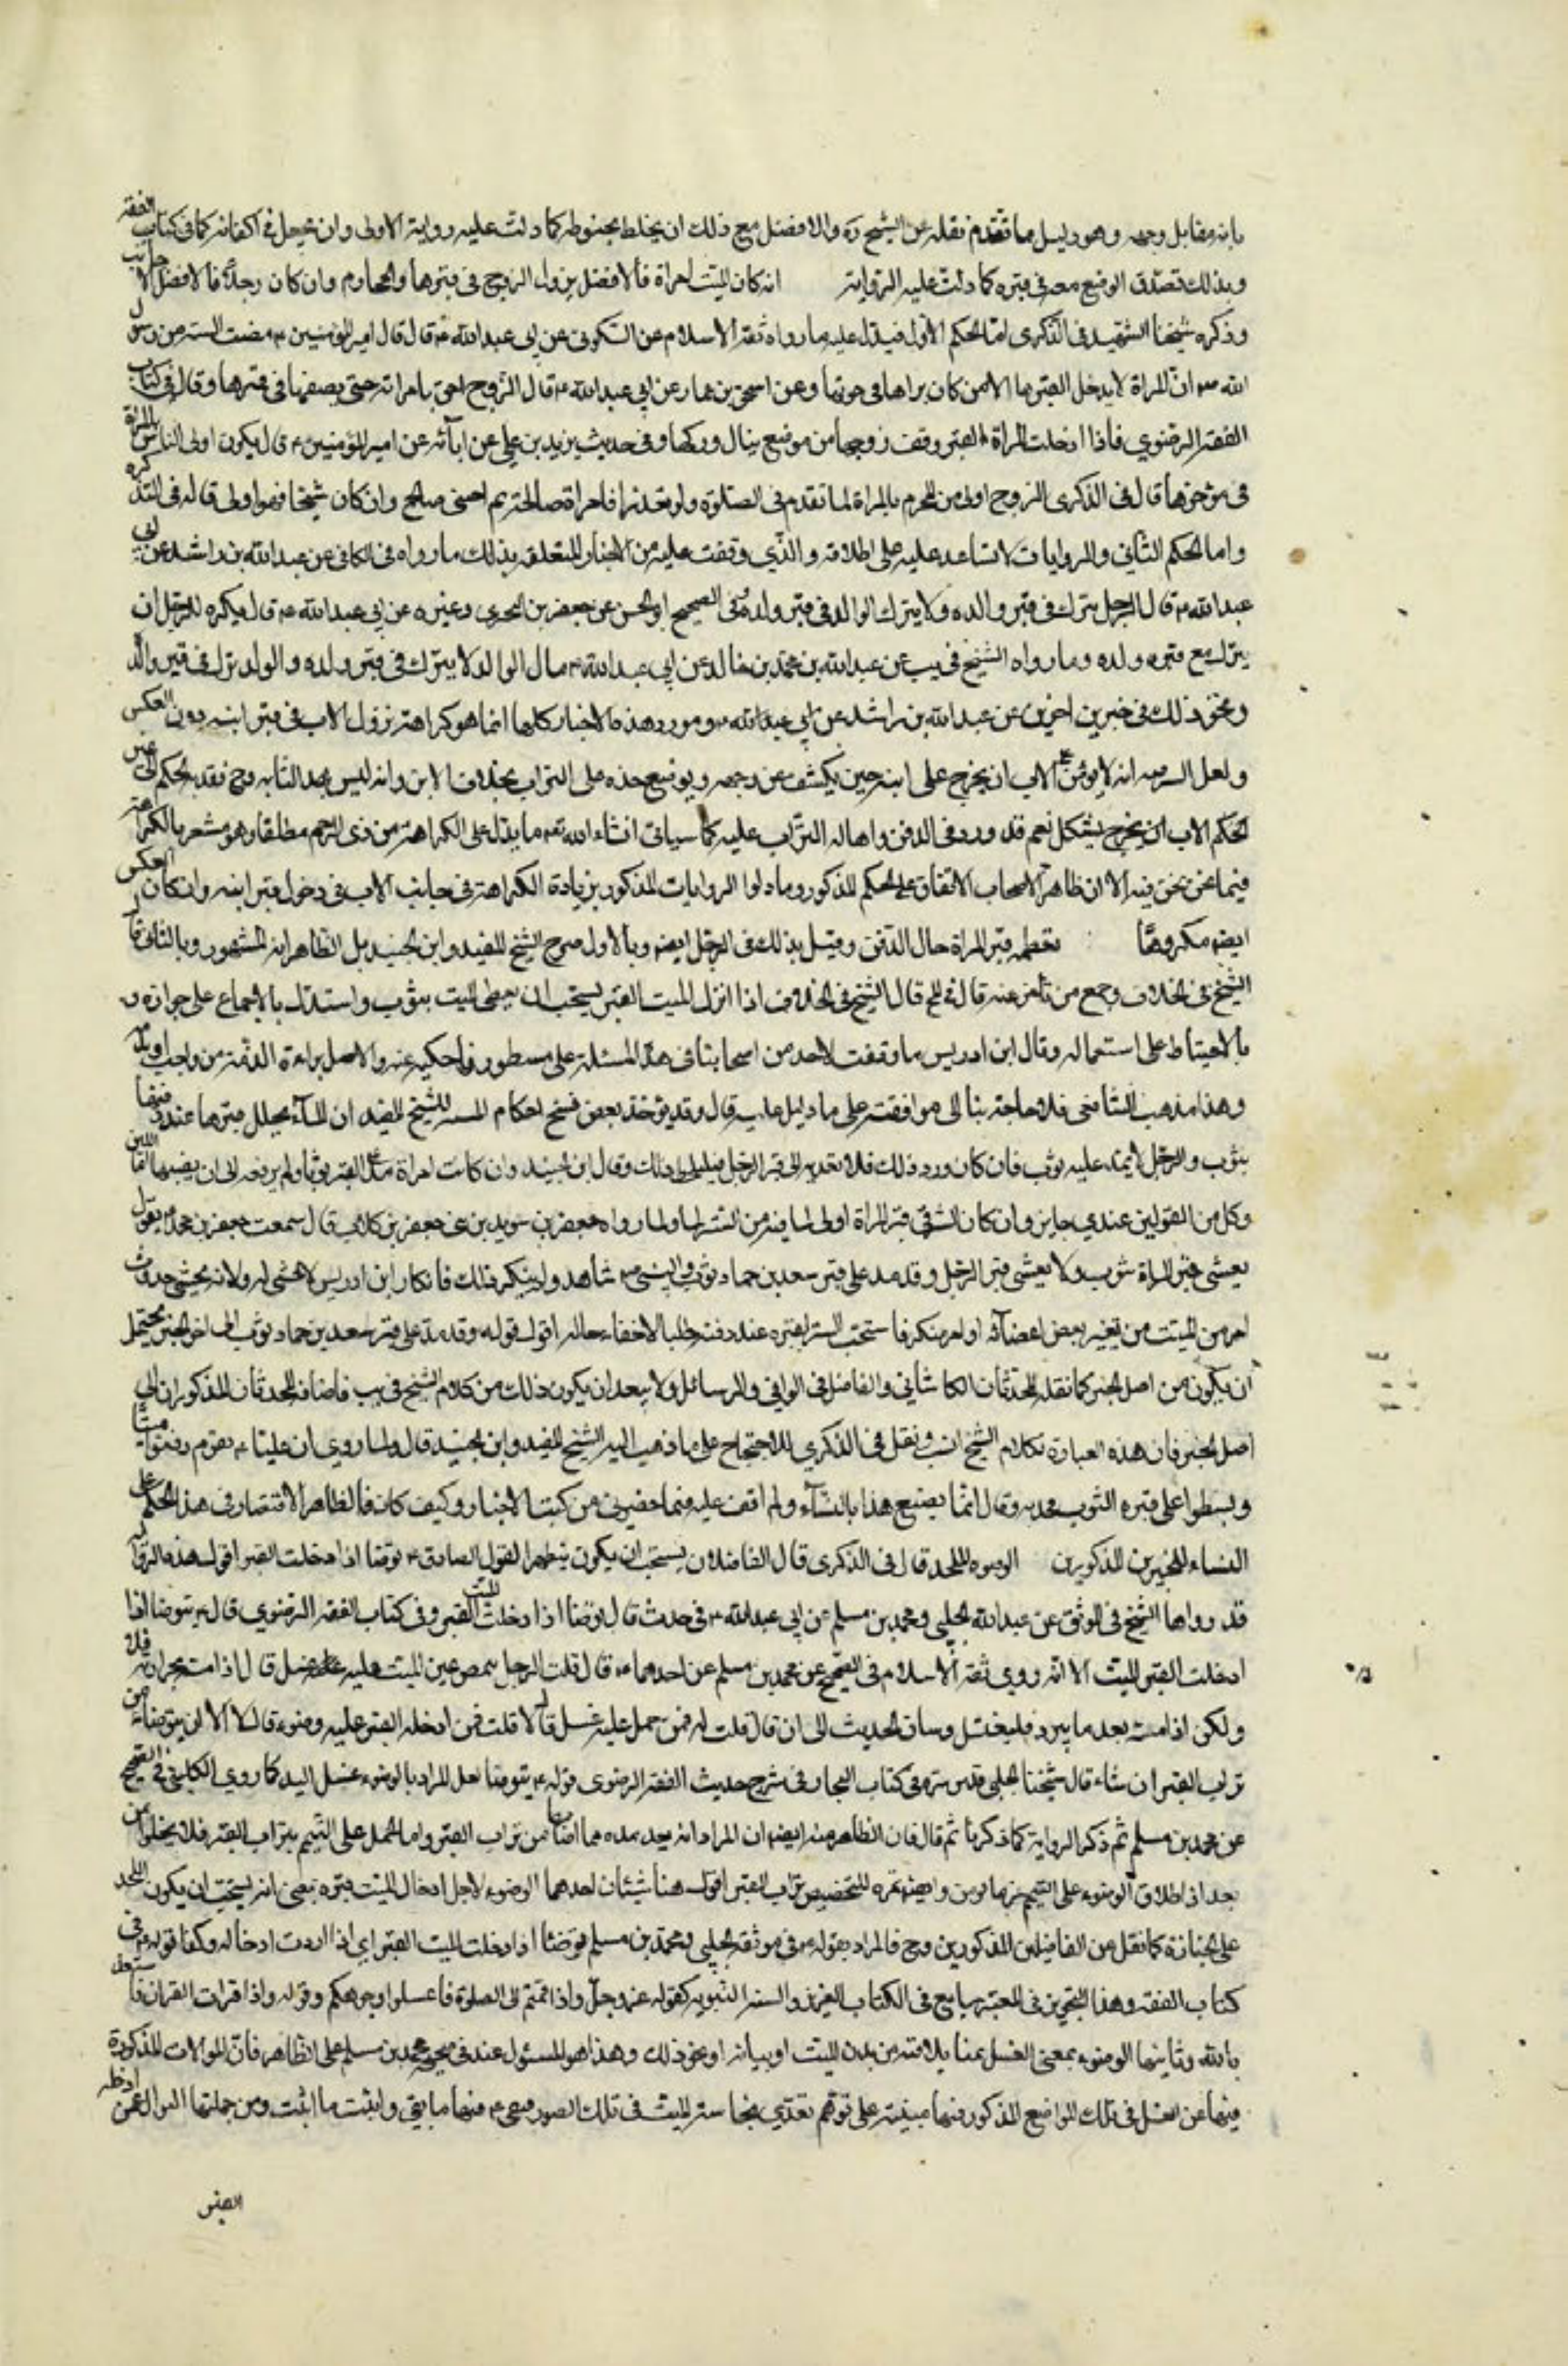 بانه مقابل وجهه وهو دليل ما تقدم نقله عن الشيخ ره والافضل مع ذلك ان يخلط بحنوطه كما دلت عليه رواية الاولى وان يجعل في اكفانه كما في كتاب الفقه
وبذلك تصدق الوضع معه في قبره كما دلت عليه الرواية انه كان الميت امراة فالافضل نزول الزوج في قبرها والمحارم وان كان رجلا فالافضل الاجانب
وذكره شيخنا الشهيد في الذكرى اما الحكم الاول فيدل عليه ما رواه ثقة الاسلام عن السكوني عن ابي عبد الله ع قال قال امير المؤمنين ع مضت السنة من رسول
الله ص ان المراة لا يدخل القبر بها الا من كان يراها في حيوتها وعن اسحق بن عمار عن ابي عبد الله ع قال الزوج احق بامراته حتى يضعها في قبرها وقال في كتاب
الفقه الرضوي فاذا ادخلت المراة القبر وقف زوجها من موضع ينال وركها وفي حديث زيد بن علي عن ابآئه عن امير المؤمنين ع قال يكون اولى الناس بالمراة
في مؤخرها قال في الذكرى الزوج اولى من المحرم بالمراة لما تقدم في الصلوة ولو تعذر فامراة صالحة ثم اجنبي صالح وان كان شيخا فهو اولى قاله في التذكره
واما الحكم الثاني والروايات لا تساعد عليه على اطلاقه والذي وقفت عليه من الاخبار المتعلقه بذلك ما رواه في الكافي عن عبد الله بن راشد عن ابي
عبد الله ع قال الرجل ينزل في قبر والده ولا ينزل الوالد في قبر ولده وفي الصحيح او الحسن عن حفص بن البختري وغيره عن ابي عبد الله ع قال يكره للرجل ان
ينزل مع قبره ولده وما رواه الشيخ في يب عن عبد الله بن محمد بن خالد عن ابي عبد الله ع قال الوالد لا ينزل في قبر ولده والولد ينزل في قبر والده
ونحو ذلك في خبرين اخرين عن عبد الله بن راشد عن ابي عبد الله ع ومورد هذه الاخبار كلها انما هو كراهة نزول الاب في قبر ابنه دون العكس
ولعل السر فيه انه لا يؤمن على الاب ان يجزع على ابنه حين يكشف عن وجهه ويوضع خده على التراب بخلاف الابن وانه ليس بهذا المثابه وح فتعدية الحكم الى غير
الحكم الاب ان يخرج بشكل نعم قد ورد في الدفن واهالة التراب عليه كما سياتي انشاء الله تع ما يدل على الكراهة من ذي الرحم مطلقا وهو مشعر بالكراهة
فيما نحن فيه الا ان ظاهر الاصحاب الاتفاق على الحكم المذكور وما دلوا الروايات المذكور زيادة الكراهة في جانب الاب في دخول قبر ابنه وان كان العكس
ايضا مكروها تغطية قبر المراة حال الدفن وقيل بذلك في الرجل ايضا وبالاول صرح الشيخ المفيد وابن الجنيد بل الظاهر انه المشهور وبالثاني قال
الشيخ في الخلاف وجمع من تاخر عنه قال في لمع قال الشيخ في الخلاف اذا انزل الميت القبر يستحب ان يغطى الميت بثوب واستدل بالاجماع على جوازه و
بالاحتياط على استعماله وقال ابن ادريس ما وقفت لاحد من اصحابنا في هذه المسئلة على مسطور فاحكيه عنه والاصل براءة الذمة من واجب او ندب
وهذا مذهب الشافعي فلا حاجة بنا الى موافقته على ما دليل عليه قال وقد يوجد بعض نسخ احكام النساء للشيخ المفيد ان المراة يجلل قبرها عند دفنها
بثوب والرجل لا يمد عليه ثوب فان كان ورد ذلك فلا نعديه الى قبر الرجل فليلحظ ذلك وقال ابن الجنيد وان كانت امراة مد على القبر ثوبا ولم يرفعه الى ان يغيبها اللبن
وكل من القولين عندي جايز وان كان الستر في قبر المراة اولى لما فيه من الستر لها ولما رواه جعفر بن سويد بن عن جعفر بن كلاب قال سمعت جعفر بن محمد ع يقول
يغشى قبر المراة بثوب ولا يغشى قبر الرجل وقد مد على قبر سعد بن معاذ ثوب والنبي ص شاهد ولم ينكر ذلك فانكار ابن ادريس لا معنى له ولانه يخشى حدوث
امر من الميت من تغير بعض اعضائه او امر منكر فاستحب الستر لقبره عند دفنه طلبا لاخفاء حاله اقول قوله وقد مد على قبر سعد بن معاذ ثوب الى اخر الخبر يحتمل
ان يكون من اصل الخبر كما نقله المحدثان الكاشاني والفاضل في الوافي والرسائل ولا يبعد ان يكون ذلك من كلام الشيخ في يب فاضافه المحدثان المذكوران الى
اصل الخبر فان هذه العبارة بكلام الشيخ انسب ونقل في الذكرى للاحتجاج على ما ذهب اليه الشيخ المفيد وابن الجنيد قال ولما روي ان عليا ع بقوم دفنوا ميتا
وبسطوا على قبره الثوب فجذبه وقال انما يصنع هذا بالنساء ولم اقف عليه فيما حضرني من كتب الاخبار وكيف كان فالظاهر الاقتصار في هذا الحكم على
النساء للخبرين المذكورين الوضوء للملحد قال في الذكرى قال الفاضلان يستحب ان يكون متطهرا لقول الصادق ع توضا اذا ادخلت القبر اقول هذه الرواية
قد رواها الشيخ في الموثق عن عبيد الله الحلبي ومحمد بن مسلم عن ابي عبد الله ع في حديث قال توضا اذا ادخلت الميت القبر وفي كتاب الفقه الرضوي قال ع تتوضا اذا
ادخلت القبر الميت الا انه روى ثقة الاسلام في الصحيح عن محمد بن مسلم عن احدهما ع قال قلت الرجل يغمض عين الميت عليه غسل قال اذا مسه بحرارته فلا
ولكن اذا مسه بعد ما يبرد فليغتسل وساق الحديث الى ان قال قلت له فمن حمله عليه غسل قال لا قلت فمن ادخله القبر عليه وضوء قال لا الا ان يتوضا من
تراب القبر ان شاء قال شيخنا المجلسي قدس سره في كتاب البحار في شرح حديث الفقه الرضوي قوله ع تتوضا لعل المراد بالوضوء غسل اليد كما روى الكليني في الصحيح
عن محمد بن مسلم ثم ذكر الرواية كما ذكرنا ثم قال فان الظاهر منه ايضا ان المراد انه يغسل يده مما اصابها من تراب القبر واما الحمل على التيمم بتراب القبر فلا يخلو من
بعد اذ اطلاق الوضوء على التيمم غير مانوس وايضا لا ثمرة للتخصيص بتراب القبر اقول هنا شيئان احدهما الوضوء لاجل ادخال الميت قبره بمعنى انه يستحب ان يكون الملحد
على الجنازة كما نقل من الفاضلين المذكورين وح فالمراد بقوله ع في موثقة الحلبي ومحمد بن مسلم توضا اذا ادخلت الميت القبر اي اذا اردت ادخاله وكذا قوله ع في
كتاب الفقه وهذا التجوز في التعبير شايع في الكتاب العزيز والسنة النبوية كقوله عز وجل واذا قمتم الى الصلوة فاغسلوا وجوهكم وقوله واذا قرات القران فاستعذ
بالله وثانيها الوضوء بمعنى الغسل مما يلاقيه من بدن الميت او ثيابه او نحو ذلك وهذا هو المسئول عنه في صحيح محمد بن مسلم على الظاهر فان السؤالات المذكورة
فيها عن الغسل في تلك المواضع المذكور فيها مبنية على توهم تعدي نجاسة الميت في تلك الصور فنفى ع منها ما نفى واثبت ما اثبت ومن جملتها السؤال عمن ادخله
القبر